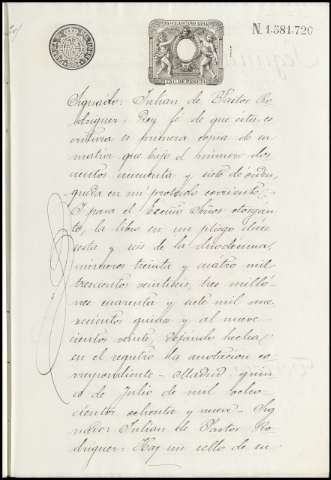 N. 1.581.720
Signado: Julian de Pastor Ro
driguez: Doy fe de que esta es
critura es primera copia de su
matriz que bajo el número dos
cientos cincuenta y siete de orden,
queda en mi protocolo corriente.
Y para el Excmo Señor otorgan
te, la libro en un pliego clase
sesta y seis de la duodecima,
números treinta y cuatro mil
trescientos veintiseis, tres millo
nes cuarenta y siete mil nue
vecientos quince y al nueve
cientos veinte, dejando hecha
en el registro la anotacion co
rrespondiente. Madrid quin
ce de Julio de mil ocho
cientos ochenta y nueve. Sig
nado: Julian de Pastor Ro
driguez: Hay un sello de su